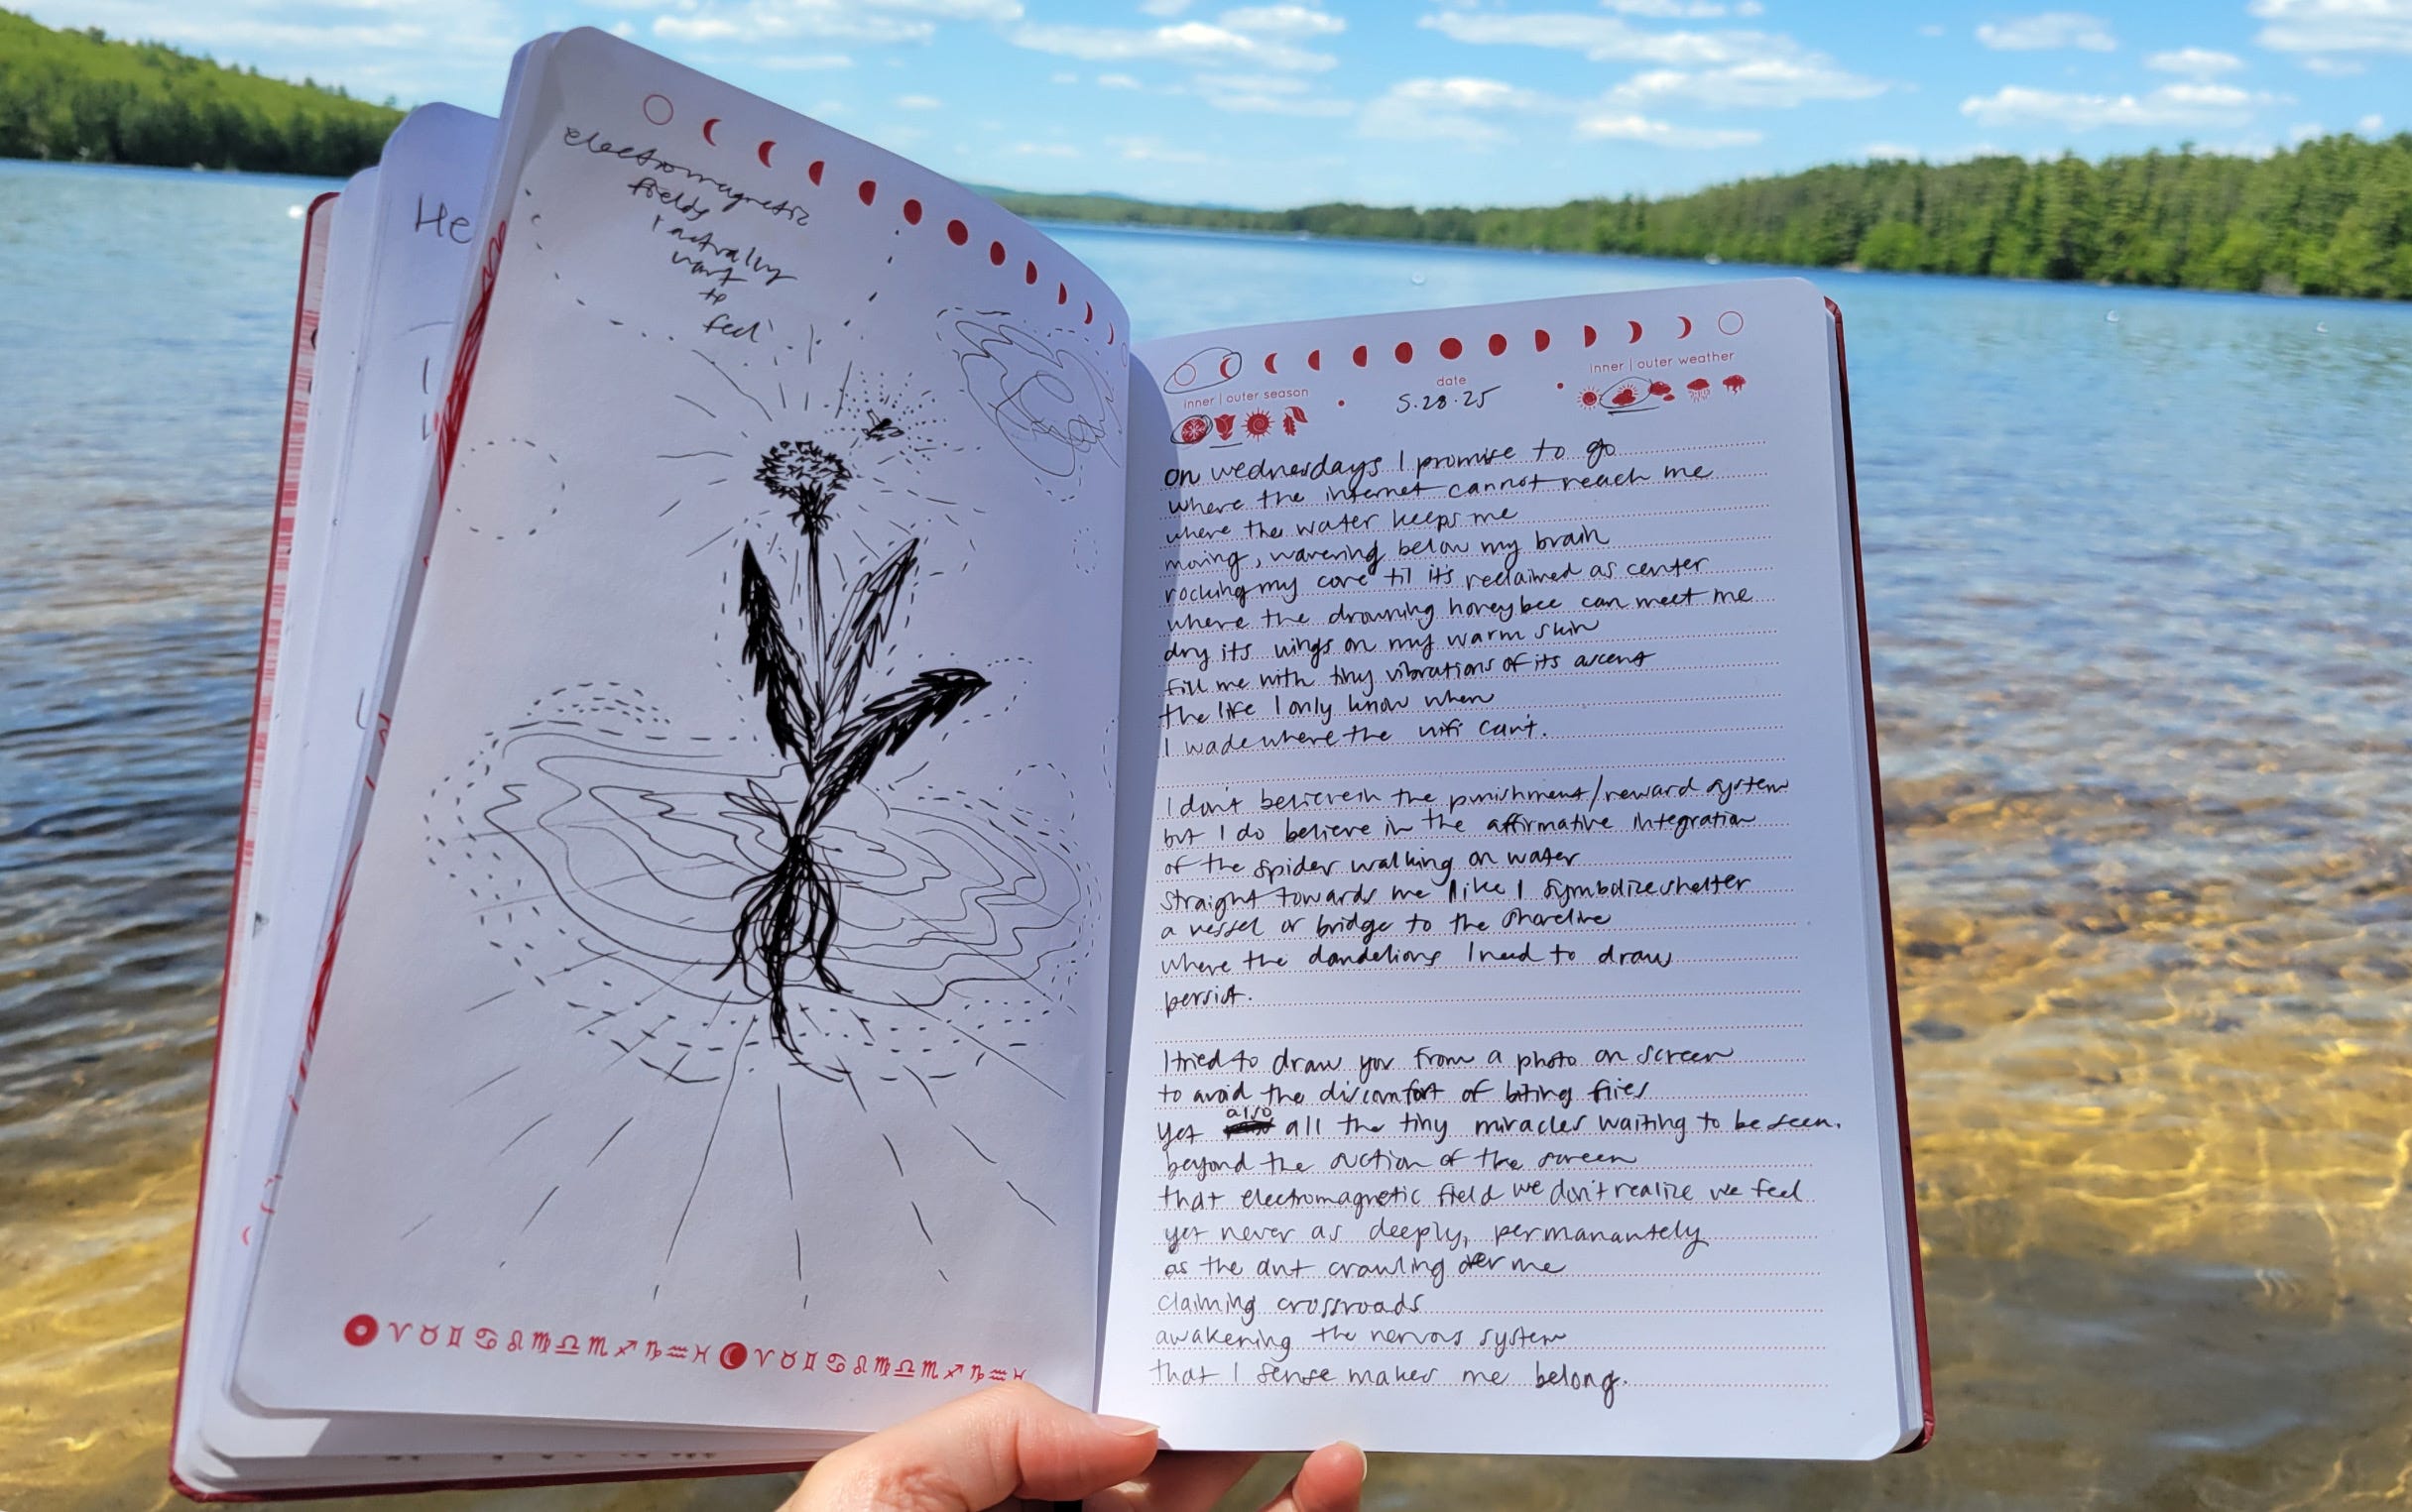 He
electromagnetic
fields
I actually
want
to
feel
inner | outer season
date
5.28.25
inner | outer weather
on wednesdays I promise to go
where the internet cannot reach me
where the water keeps me
moving, wavering below my brain
rocking my core til it's reclaimed as center
where the drowning honeybee can meet me
dry its wings on my warm skin
fill me with tiny vibrations of its ascent
the life I only know when
I wade where the wifi can't.
I don't believe in the punishment/reward system
but I do believe in the affirmative integration
of the spider walking on water
straight towards me like I symbolize shelter
a vessel or bridge to the shoreline
where the dandelions I need to draw
persist.
I tried to draw you from a photo on screen
to avoid the discomfort of biting flies
yet also all the tiny miracles waiting to be seen.
beyond the suction of the screen
that electromagnetic field we don't realize we feel
yet never as deeply, permanantely
as the ant crawling over me
claiming crossroads
awakening the nervous system
that I sense makes me belong.
♈♉♊♋♌♍♎♏♐♑♒♓ ♈♉♊♋♌♍♎♏♐♑♒♓